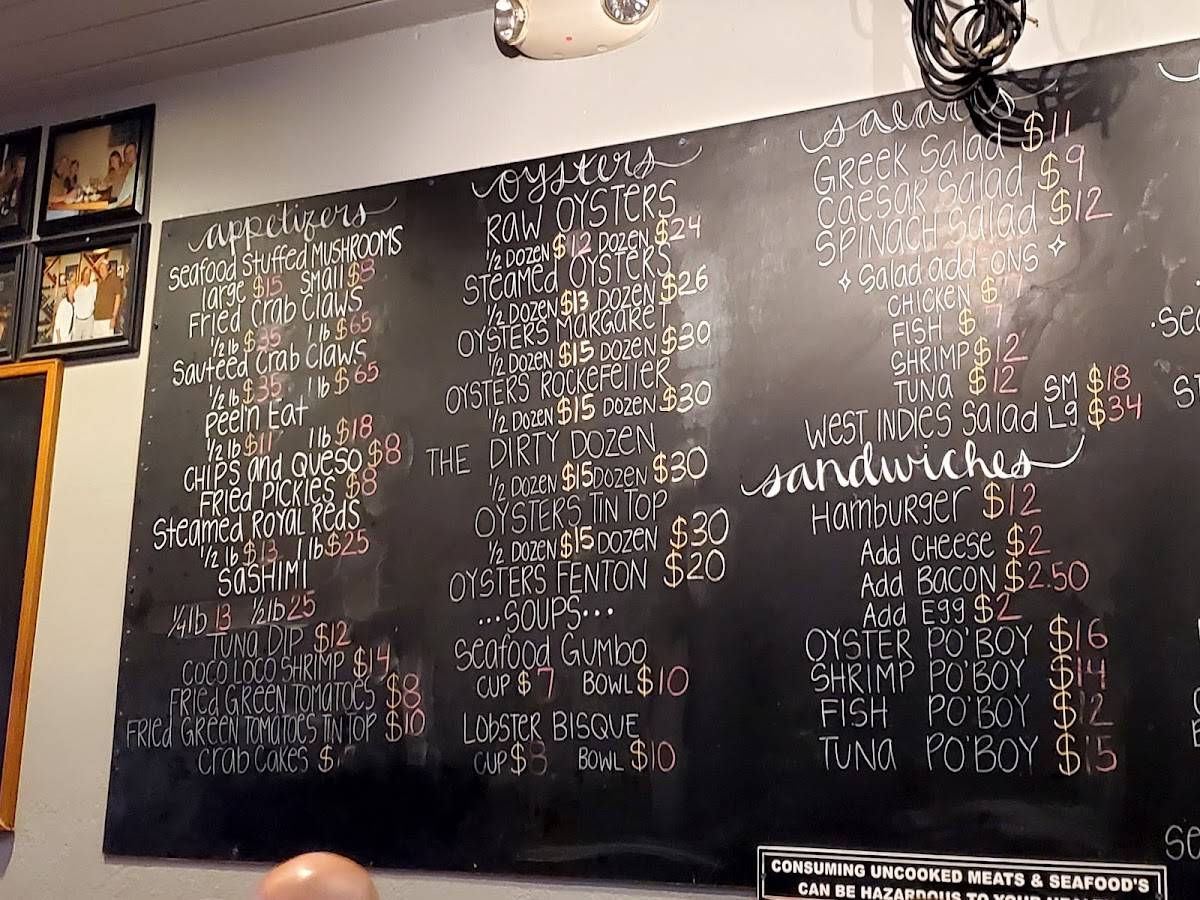 appetizers
Seafood Stuffed MUSHROOMS
large $15 Small $8
Fried Crab Claws
1/2 lb $35 1 lb $65
Sauteed Crab Claws
1/2 lb $35 1 lb $65
Peel'n Eat
1/2 lb $11 1 lb $18
CHIPS and QUESO $8
Fried PICKLES $8
Steamed ROYAL REDS
1/2 lb $13 1 lb $25
SASHIMI
1/4 lb 13 1/2 lb 25
TUNA DIP $12
COCO LOCO SHRIMP $14
FRIED GREEN TOMATOES $8
FRIED GREEN TOMATOES TIN TOP $10
Crab Cakes $
oysters
RAW OYSTERS
1/2 DOZEN $12 DOZEN $24
STEAMED OYSTERS
1/2 DOZEN $13 DOZEN $26
OYSTERS MARGARET
1/2 DOZEN $15 DOZEN $30
OYSTERS ROCKEFELLER
1/2 DOZEN $15 DOZEN $30
THE DIRTY DOZEN
1/2 DOZEN $15 DOZEN $30
OYSTERS TIN TOP
1/2 DOZEN $15 DOZEN $30
OYSTERS FENTON $20
...SOUPS...
Seafood GUMBO
CUP $7 BOWL $10
LOBSTER BISQUE
CUP $8 BOWL $10
salads
GREEK Salad $11
Caesar Salad $9
SPINACH Salad $12
Salad add-ons
CHICKEN $
FISH $7
SHRIMP $12
TUNA $12
WEST INDIES Salad SM $18
Lg $34
sandwiches
Hamburger $12
Add CHEESE $2
Add BACON $2.50
Add Egg $2
OYSTER PO'BOY $16
SHRIMP PO'BOY $14
FISH PO'BOY $12
TUNA PO'BOY $15
CONSUMING UNCOOKED MEATS & SEAFOOD'S
CAN BE HAZARDOUS TO YOUR HEALTH